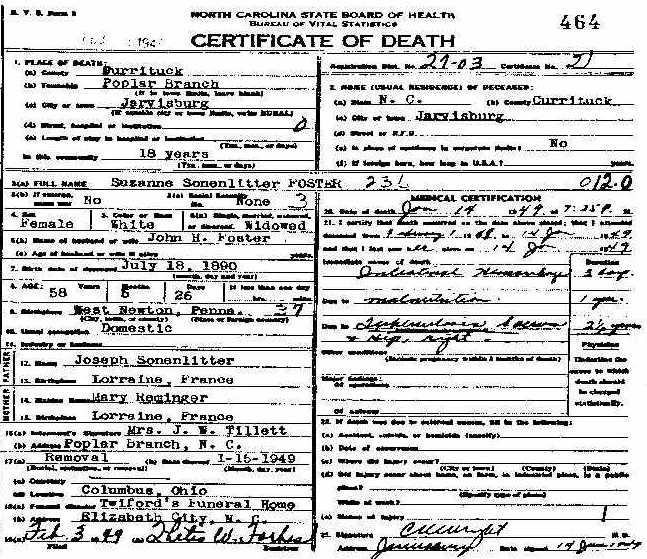 NORTH CAROLINA STATE BOARD OF HEALTH
BUREAU OF VITAL STATISTICS
464
CERTIFICATE OF DEATH
1. PLACE OF DEATH:
(a) County Currituck
(b) Township Poplar Branch
(c) City or town Jarvisburg
(d) Street, hospital or institution 0
(e) Length of stay in hospital or institution
In this community 18 years
Registration Dist. No. 27-03 Certificate No.
2. HOME (USUAL RESIDENCE) OF DECEASED:
(a) State N. C. (b) County Currituck
(c) City or town Jarvisburg
(d) Street or R.F.D.
(e) Is place of residence in corporate limits? No
(f) If foreign born, how long in U.S.A.? years
3(a) FULL NAME Suzanne Sonenlitter FOSTER 231 012.0
3(b) If veteran, name war No 3(c) Social Security No. None 3
4. Sex Female 5. Color or Race White 6(a) Single, married, widowed, or divorced. Widowed
6(b) Name of husband or wife John H. Foster
(c) Age of husband or wife if alive years
7. Birth date of deceased July 18, 1890
(month, day and year)
8. AGE: 58 Years 5 Months 26 Days If less than one day
9. Birthplace West Newton, Penna. 37
(City, town, or county) (State or foreign country)
10. Usual occupation Domestic
11. Industry or business
FATHER
12. Name Joseph Sonenlitter
13. Birthplace Lorraine, France
MOTHER
14. Maiden Name Mary Reminger
15. Birthplace Lorraine, France
16(a) Informant's Signature Mrs. J. W. Tillett
(b) Address Poplar Branch, N. C.
17(a) Removal (b) Date thereof 1-15-1949
(Burial, cremation, or removal) (Month, day, year)
(c) Cemetery
(d) Location Columbus, Ohio
18(a) Funeral director Twiford's Funeral Home
(b) Address Elizabeth City, N. C.
19(a) Feb. 3, 49 Thetis W. Forbes
Filed
MEDICAL CERTIFICATION
20. Date of death Jan 14 1949 at 7:25 P. M.
21. I certify that death occurred on the date above stated; that I attended
and that I last saw alive on 14 Jan 1949
Immediate cause of death Duration
Cerebral Hemorrhage 2 days
Due to malnutrition 1 yr.
Due to Tuberculosis Sacrum
& Hip, right.
Other conditions
(Include pregnancy within 3 months of death)
Major findings:
Of operations
Of autopsy
Physician
Underline the cause to which death should be charged statistically.
22. If death was due to external causes, fill in the following:
(a) Accident, suicide, or homicide (specify)
(b) Date of occurrence
(c) Where did injury occur?
(City or town) (County) (State)
(d) Did injury occur about home, on farm, in industrial place, in a public place?
(Specify type of place)
While at work?
(e) Means of injury
23. Signature M.D.
Address Jarvisburg Date signed 14 Jan